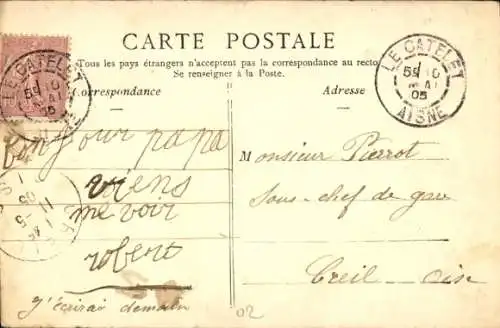 CARTE POSTALE
Tous les pays étrangers n'acceptent pas la correspondance au recto
Se renseigner à la Poste.
Correspondance
Adresse
LE CATELET
10
MAI
05
AISNE
LE CATELET
10
MAI
05
AISNE
bonjour papa
viens
me voir
robert
J'écrirai demain
Monsieur Pierrot
Sous-chef de gare
Creil - Oise
02